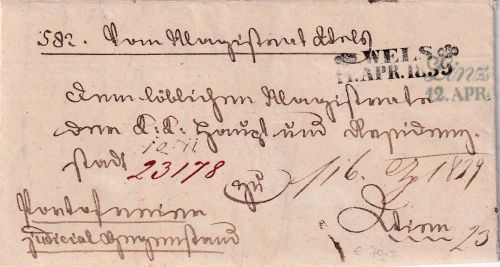 582. Vom Magistrat Wels
WELS
11. APR. 1839
Linz
12. APR.
Dem löblichen Magistrate
der K: K: Haupt und Residenz-
stadt
23178
zu
16.
1839
Wien
23
Portofreier
Judicial Gegenstand
€ 70.-